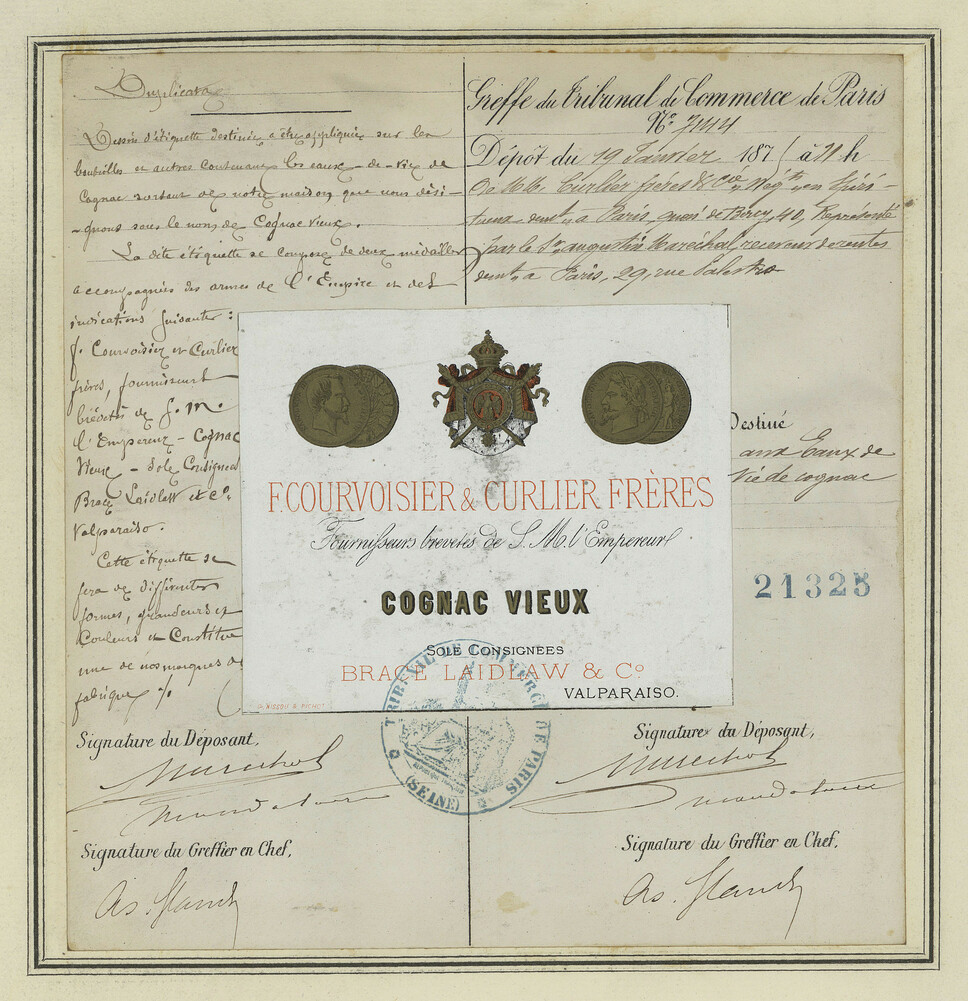 Duplicata
Dessin d'étiquette destinée a être appliquée sur les
bouteilles et autres contenant les eaux-de-vie de
Cognac sortant de notre maison que nous dési-
-gnons sous le nom de Cognac Vieux.
La dite étiquette se compose de deux médailles
accompagnées des armes de l'Empire et des
indications suivantes :
f. Courvoisier et Curlier
frères, fournisseurs
brévetés de S. M.
l'Empereur - Cognac
Vieux - Sole Consignees
Brace Laidlaw et Co.
Valparaiso.
Cette étiquette se
fera de différentes
formes, grandeurs et
Couleurs et Constitue
une de nos marques de
fabrique
Signature du Déposant,
Marechal
mandataire
Signature du Greffier en Chef,
Greffe du Tribunal de Commerce de Paris
No 7144
Dépôt du 19 Janvier 187 à 11 h
De M.M. Curlier frères & Cie, Negts en spiri-
tueux, demt a Paris, quai de Bercy, 40, Représenté
par le Sr augustin Maréchal, receveur de rentes
demt a Paris, 29, rue Palestro
Destiné
aux Eaux de
Vie de cognac
21325
F. COURVOISIER & CURLIER FRÈRES
Fournisseurs brevetés de S. M. l'Empereur
COGNAC VIEUX
SOLE CONSIGNEES
BRACE LAIDLAW & Co.
VALPARAISO.
TRIBUNAL DE COMMERCE DE PARIS
(SEINE)
Signature du Déposant,
Marechal
mandataire
Signature du Greffier en Chef,